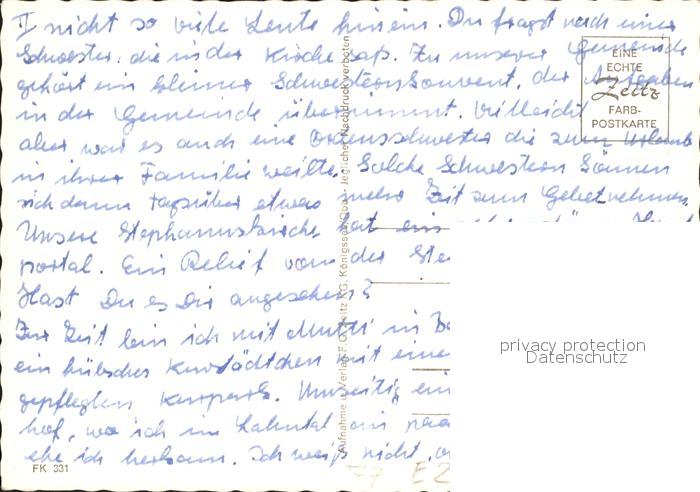 II nicht so viele Leute hinein. Du fragst nach einer
Schwester, die in der Kirche saß. Zu unserer Gemeinde
gehört ein kleiner Schwesternkonvent, der Aufgaben
in der Gemeinde übernimmt. Vielleicht
aber war es auch eine Ordensschwester die zum Urlaub
in ihrer Familie weilte. Solche Schwestern können
sich dann tagsüber etwas mehr Zeit zum Gebet nehmen.
Unsere Stephanuskirche hat ein
portal. Ein Relief von der Ste
Hast Du es Dir angesehen?
Zur Zeit bin ich mit Mutti in Ba
ein hübsches Kurstädtchen mit eine
gepflegten Kurpark. Umseitig ein
hof, wo ich im Lahntal ein paa
ehe ich herkam. Ich weiß nicht, o
EINE
ECHTE
Zeitz
FARB-
POSTKARTE
Jeglicher Nachdruck verboten
Aufnahme u. Verlag F. G. Zeitz KG, Königssee/Obb.
privacy protection
Datenschutz
FK 331
77 E 2